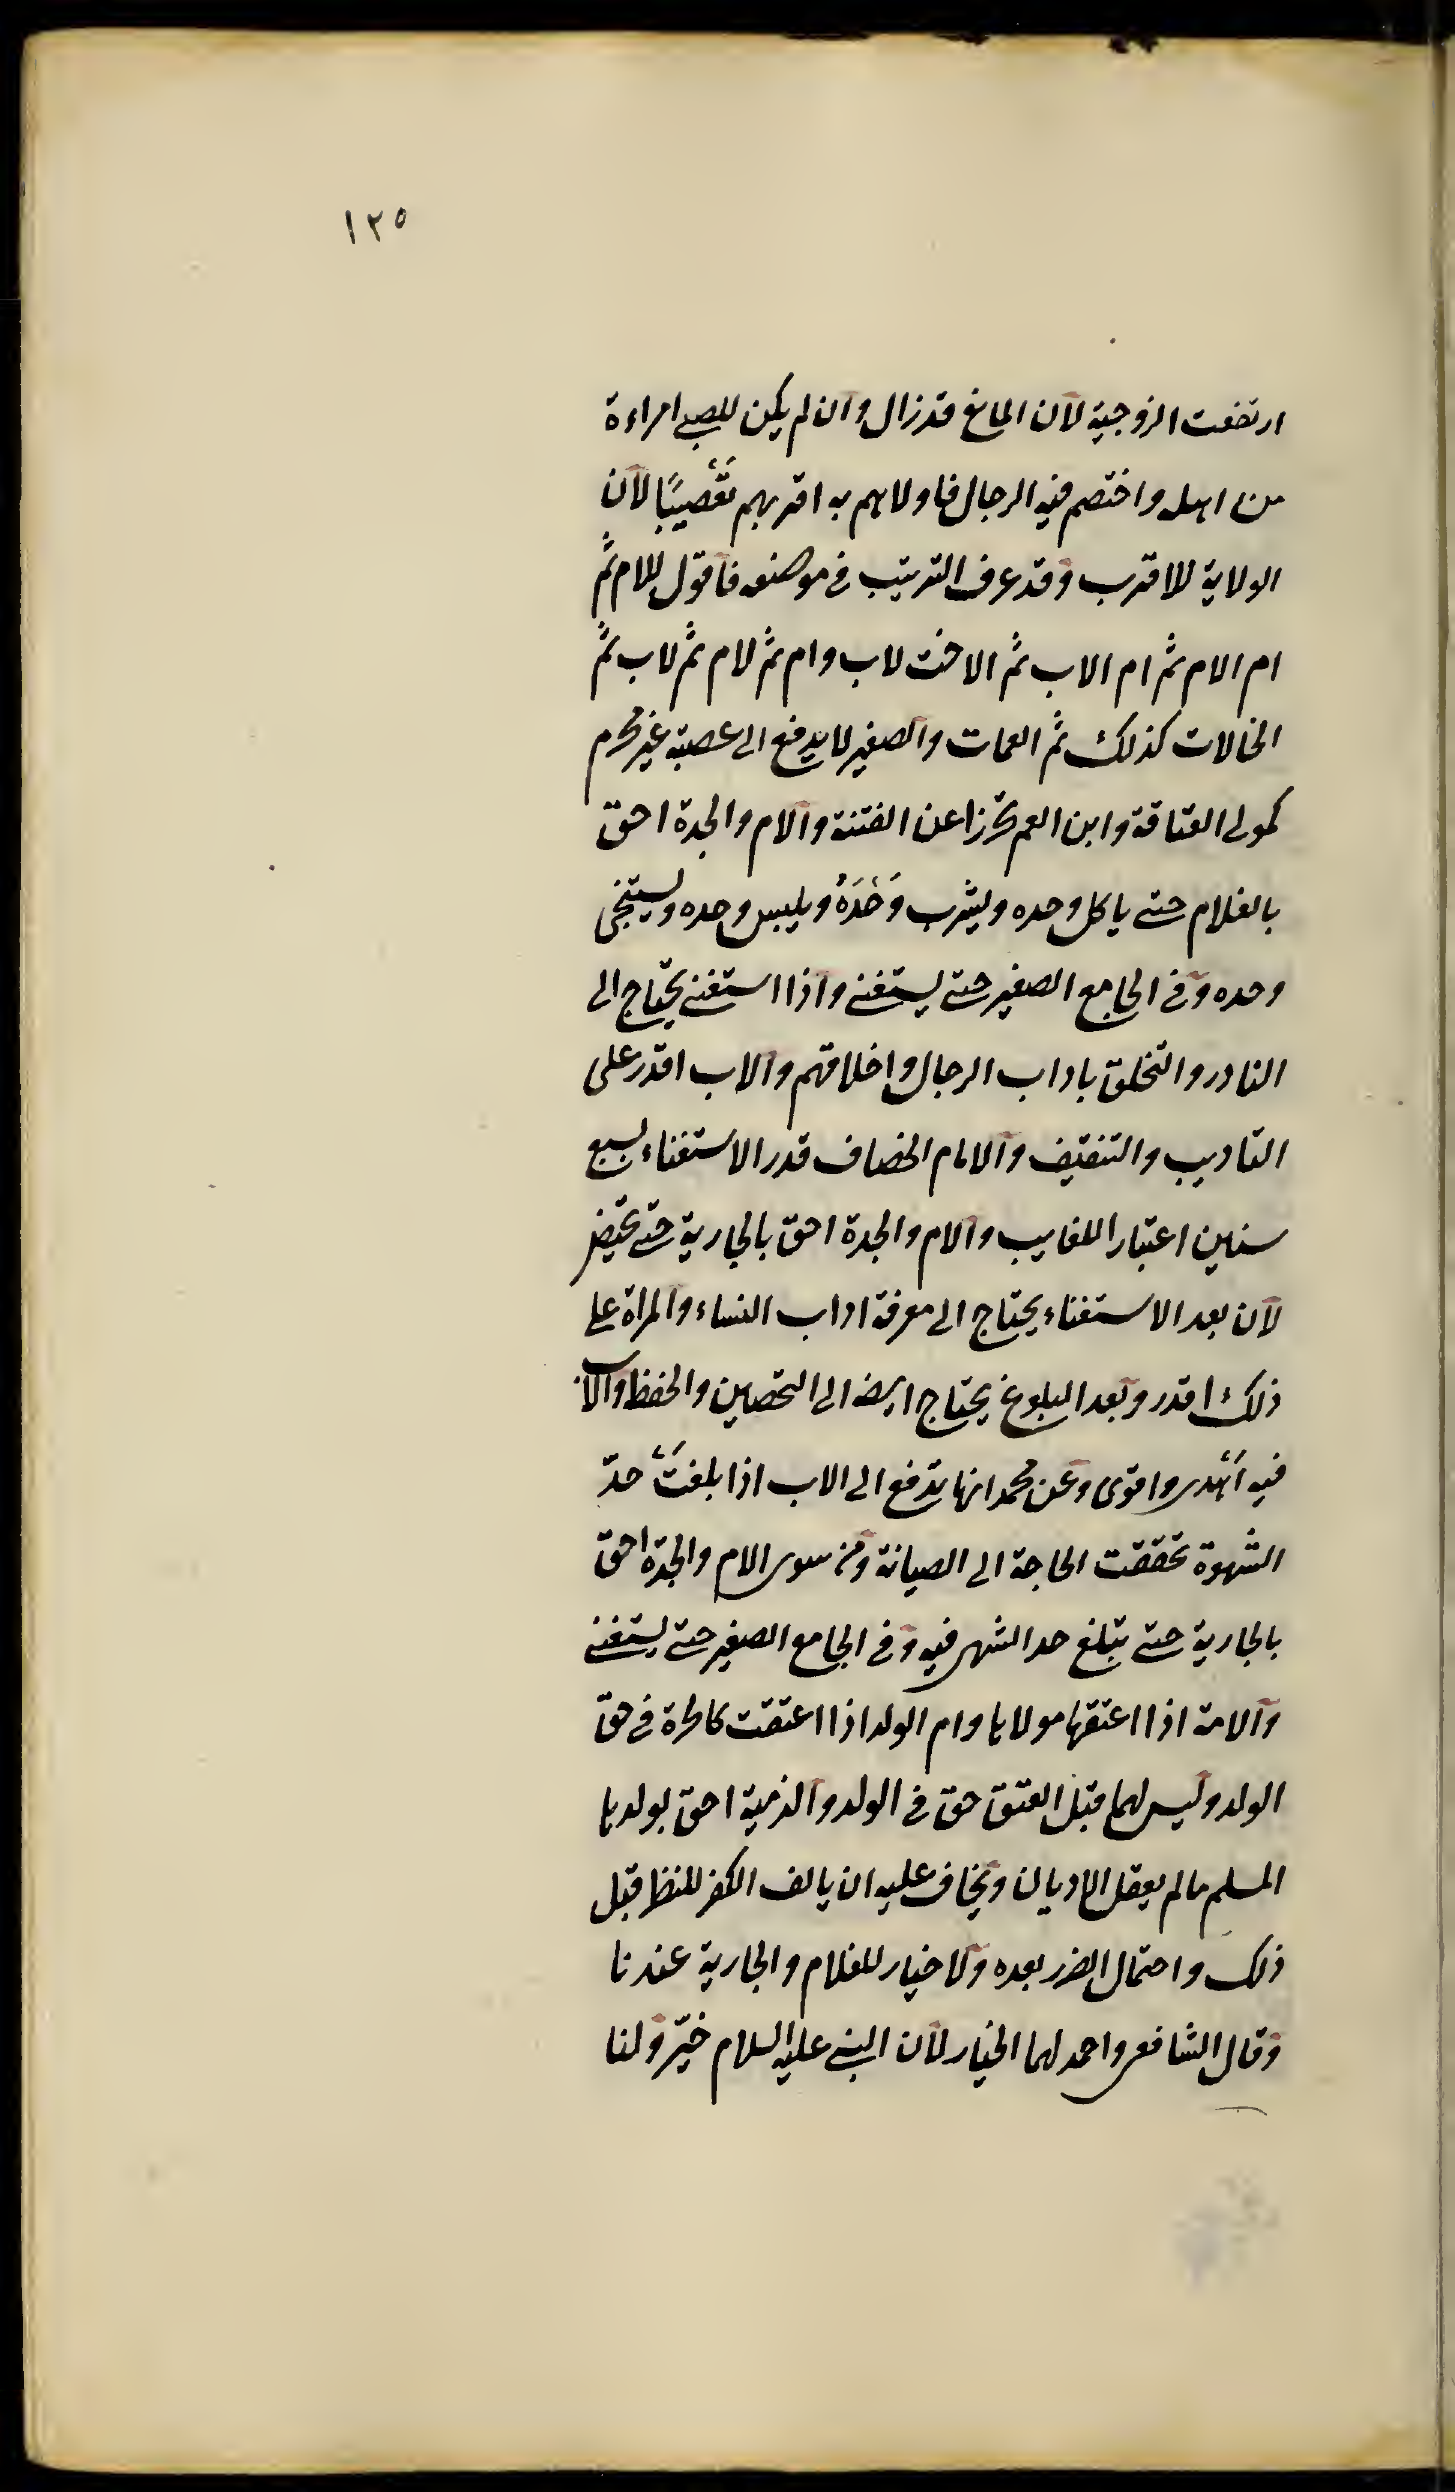 ١٢٥
ارتفعت الزوجية لان المانع قد زال وان لم يكن للصبي امراءة
من اهله واختصم فيه الرجال فاولاهم به اقربهم تعصيبًا لان
الولاية للاقرب وقد عرف الترتيب في موضعه فاقول للام ثم
ام الام ثم ام الاب ثم الاخت لاب وام ثم لام ثم لاب ثم
الخالات كذلك ثم العمات والصغير لا يدفع الى عصبة غير محرم
كمولى العتاقة وابن العم تحرزا عن الفتنة والام والجدة احق
بالغلام حتى ياكل وحده ويشرب وَحْدَهُ ويلبس وحده ويستنجي
وحده وفي الجامع الصغير حتى يستغني واذا استغني يحتاج الى
النادر والتخلق باداب الرجال واخلاقهم والاب اقدر على
التاديب والتثقيف والامام الخصاف قدر الاستغناء بسبع
سنين اعتبارا للغايب والام والجدة احق بالجارية حتى تحيض
لان بعد الاستغناء يحتاج الى معرفة اداب النساء والمراة على
ذلك اقدر وبعد البلوغ يحتاج ايضه الى التحصين والحفظ والاب
فيه اَهْدى واقوى وعن محمد انها يدفع الى الاب اذا بلغتْ حدّ
الشهوة تحققت الحاجة الى الصيانة ومن سوى الام والجدة احق
بالجارية حتى تبلغ حد الشهى فيه وفي الجامع الصغير حتى يستغني
والامة اذا اعتقها مولاها وام الولد اذا اعتقت كالحرة في حق
الولد وليس لهما قبل العتق حق في الولد والذمية احق بولدها
المسلم مالم يعقل الاديان ويخاف عليه ان يالف الكفر للنظر قبل
ذلك واحتمال الضرر بعده ولا خيار للغلام والجارية عندنا
وقال الشافعى واحمد لهما الخيار لان النبي عليه السلام خيّر ولنا